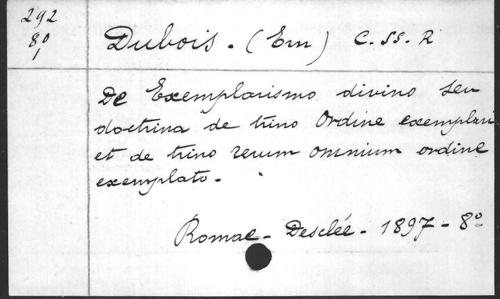 292
8º
1
Dubois. (Em) C. SS. R
De Exemplarismo divino seu
doctrina de trino Ordine exemplari
et de trino rerum omnium ordine
exemplato.
Romae - Desclée. - 1897 - 8º